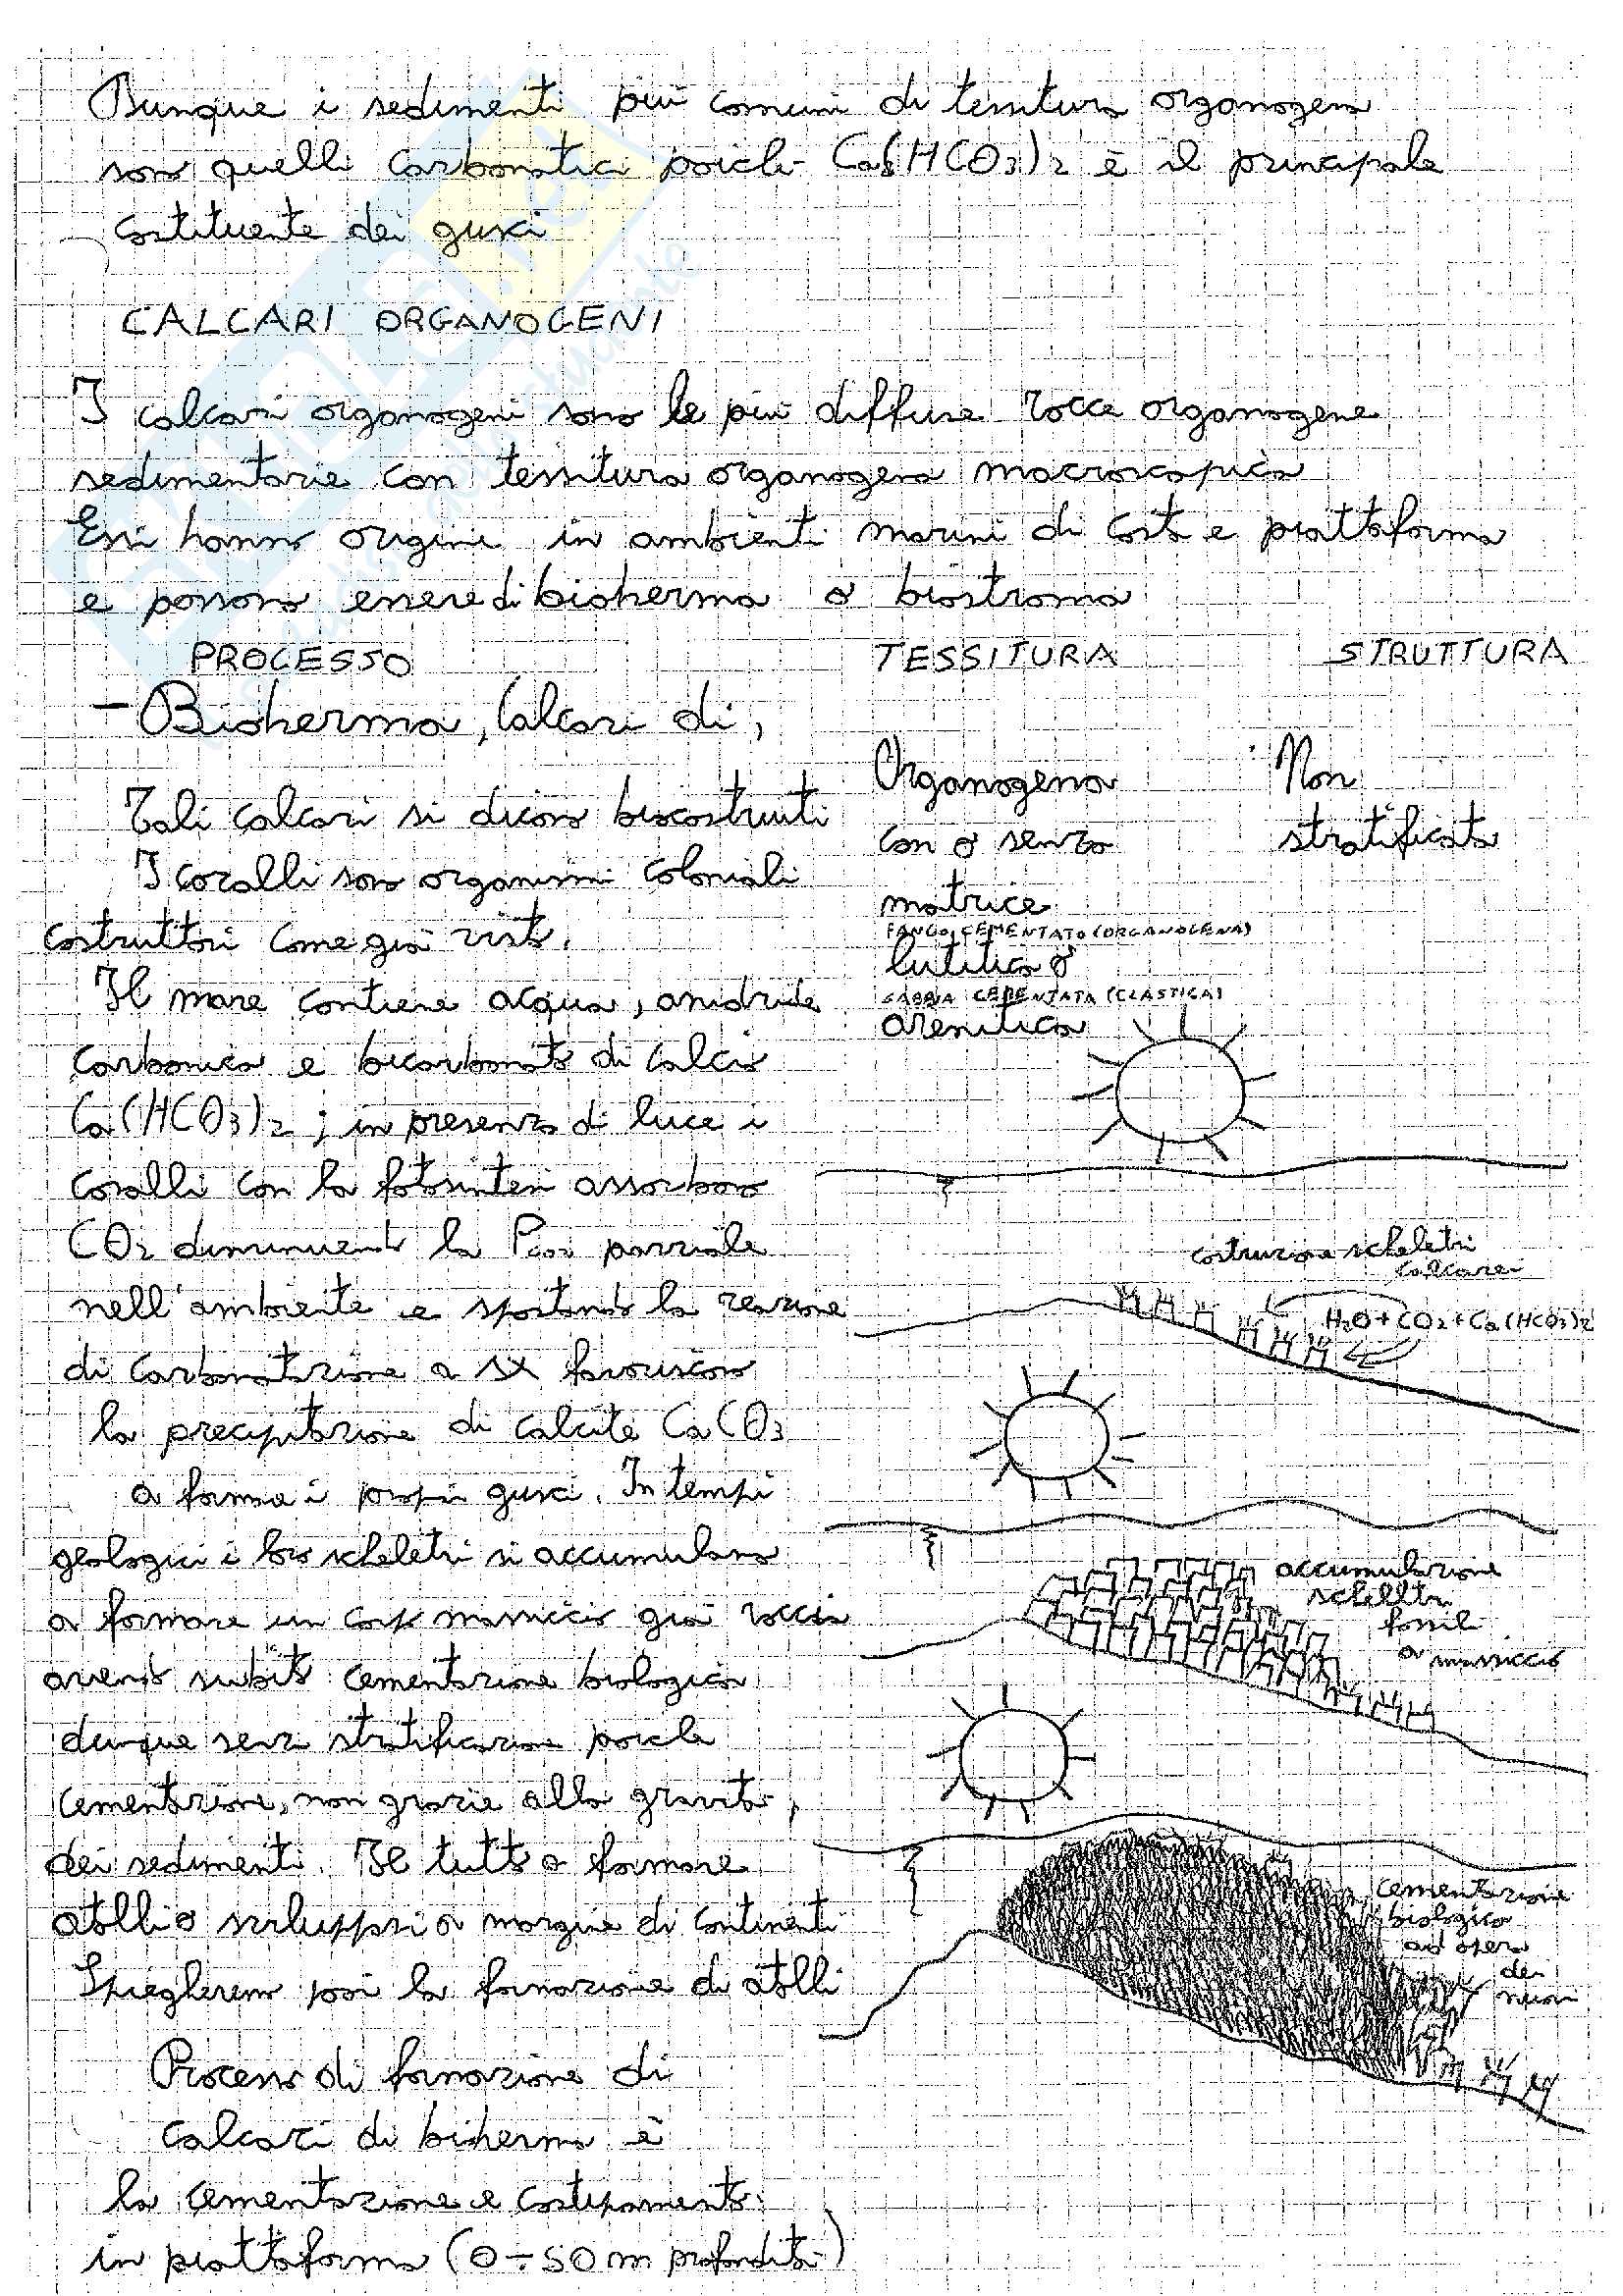 Dunque i sedimenti più comuni di tessitura organogena
sono quelli carbonatici poichè Ca(HCO3)2 è il principale
costituente dei gusci
CALCARI ORGANOGENI
I calcari organogeni sono le più diffuse rocce organogene
sedimentarie con tessitura organogena macroscopica
Essi hanno origine in ambienti marini di costa e piattaforma
e possono essere di bioherma o biostroma
PROCESSO TESSITURA STRUTTURA
- Bioherma, Calcari di,
Tali calcari si dicono biocostruiti
I coralli sono organismi coloniali
costruttori come già visto.
Il mare contiene acqua, anidride
carbonica e bicarbonato di calcio
Ca(HCO3)2; in presenza di luce i
coralli con la fotosintesi assorbono
CO2 diminuendo la PCO2 parziale
nell'ambiente e spostando la reazione
di carbonatazione a SX favoriscono
la precipitazione di calcite CaCO3
a forma i propri gusci. In tempi
geologici i loro scheletri si accumulano
a formare un corpo massiccio già roccia
avendo subito cementazione biologica
dunque senza stratificazione poichè
cementazione, non grazie alla gravità,
dei sedimenti. Il tutto a formare
atolli o sviluppi a margine di continenti
Spiegheremo poi la formazione di atolli
Processo di formazione di
calcari di bioherma è
la cementazione e costipamento
in piattaforma (0 ÷ 50 m profondità)
Organogena
con o senza
matrice
FANGO CEMENTATO (ORGANOGENA)
lutitica o
SABBIA CEMENTATA (CLASTICA)
arenitica
Non
stratificata
costruzione scheletri
calcarei
H2O + CO2 + Ca(HCO3)2
accumulazione
scheletri
fossili
a massiccio
cementazione
biologica
ad opera
dei
nuovi